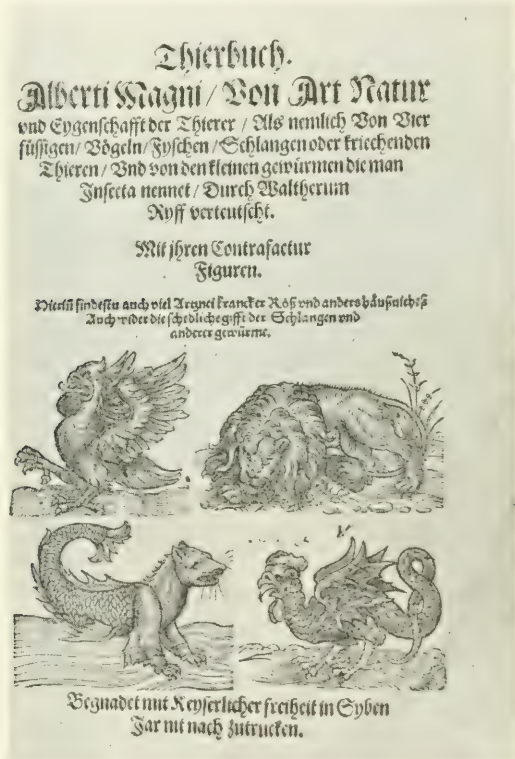 Thierbuch.
Alberti Magni / Von Art Natur
vnd Eygenschafft der Thierer / Als nemlich Von Vier
füssigen / Vögeln / Fyschen / Schlangen oder kriechenden
Thieren / Vnd von den kleinen gewürmen die man
Insecta nennet / Durch Waltherum
Ryff verteutscht.
Mit jhren Contrafactur
Figuren.
Hierin findestu auch viel Artznei krancker Roß vnd anders
Auch wider die schedliche gifft der Schlangen vnd
anderer gewürme.
Begnadet mit Keyserlicher freiheit in Syben
Jar nit nach zutrucken.